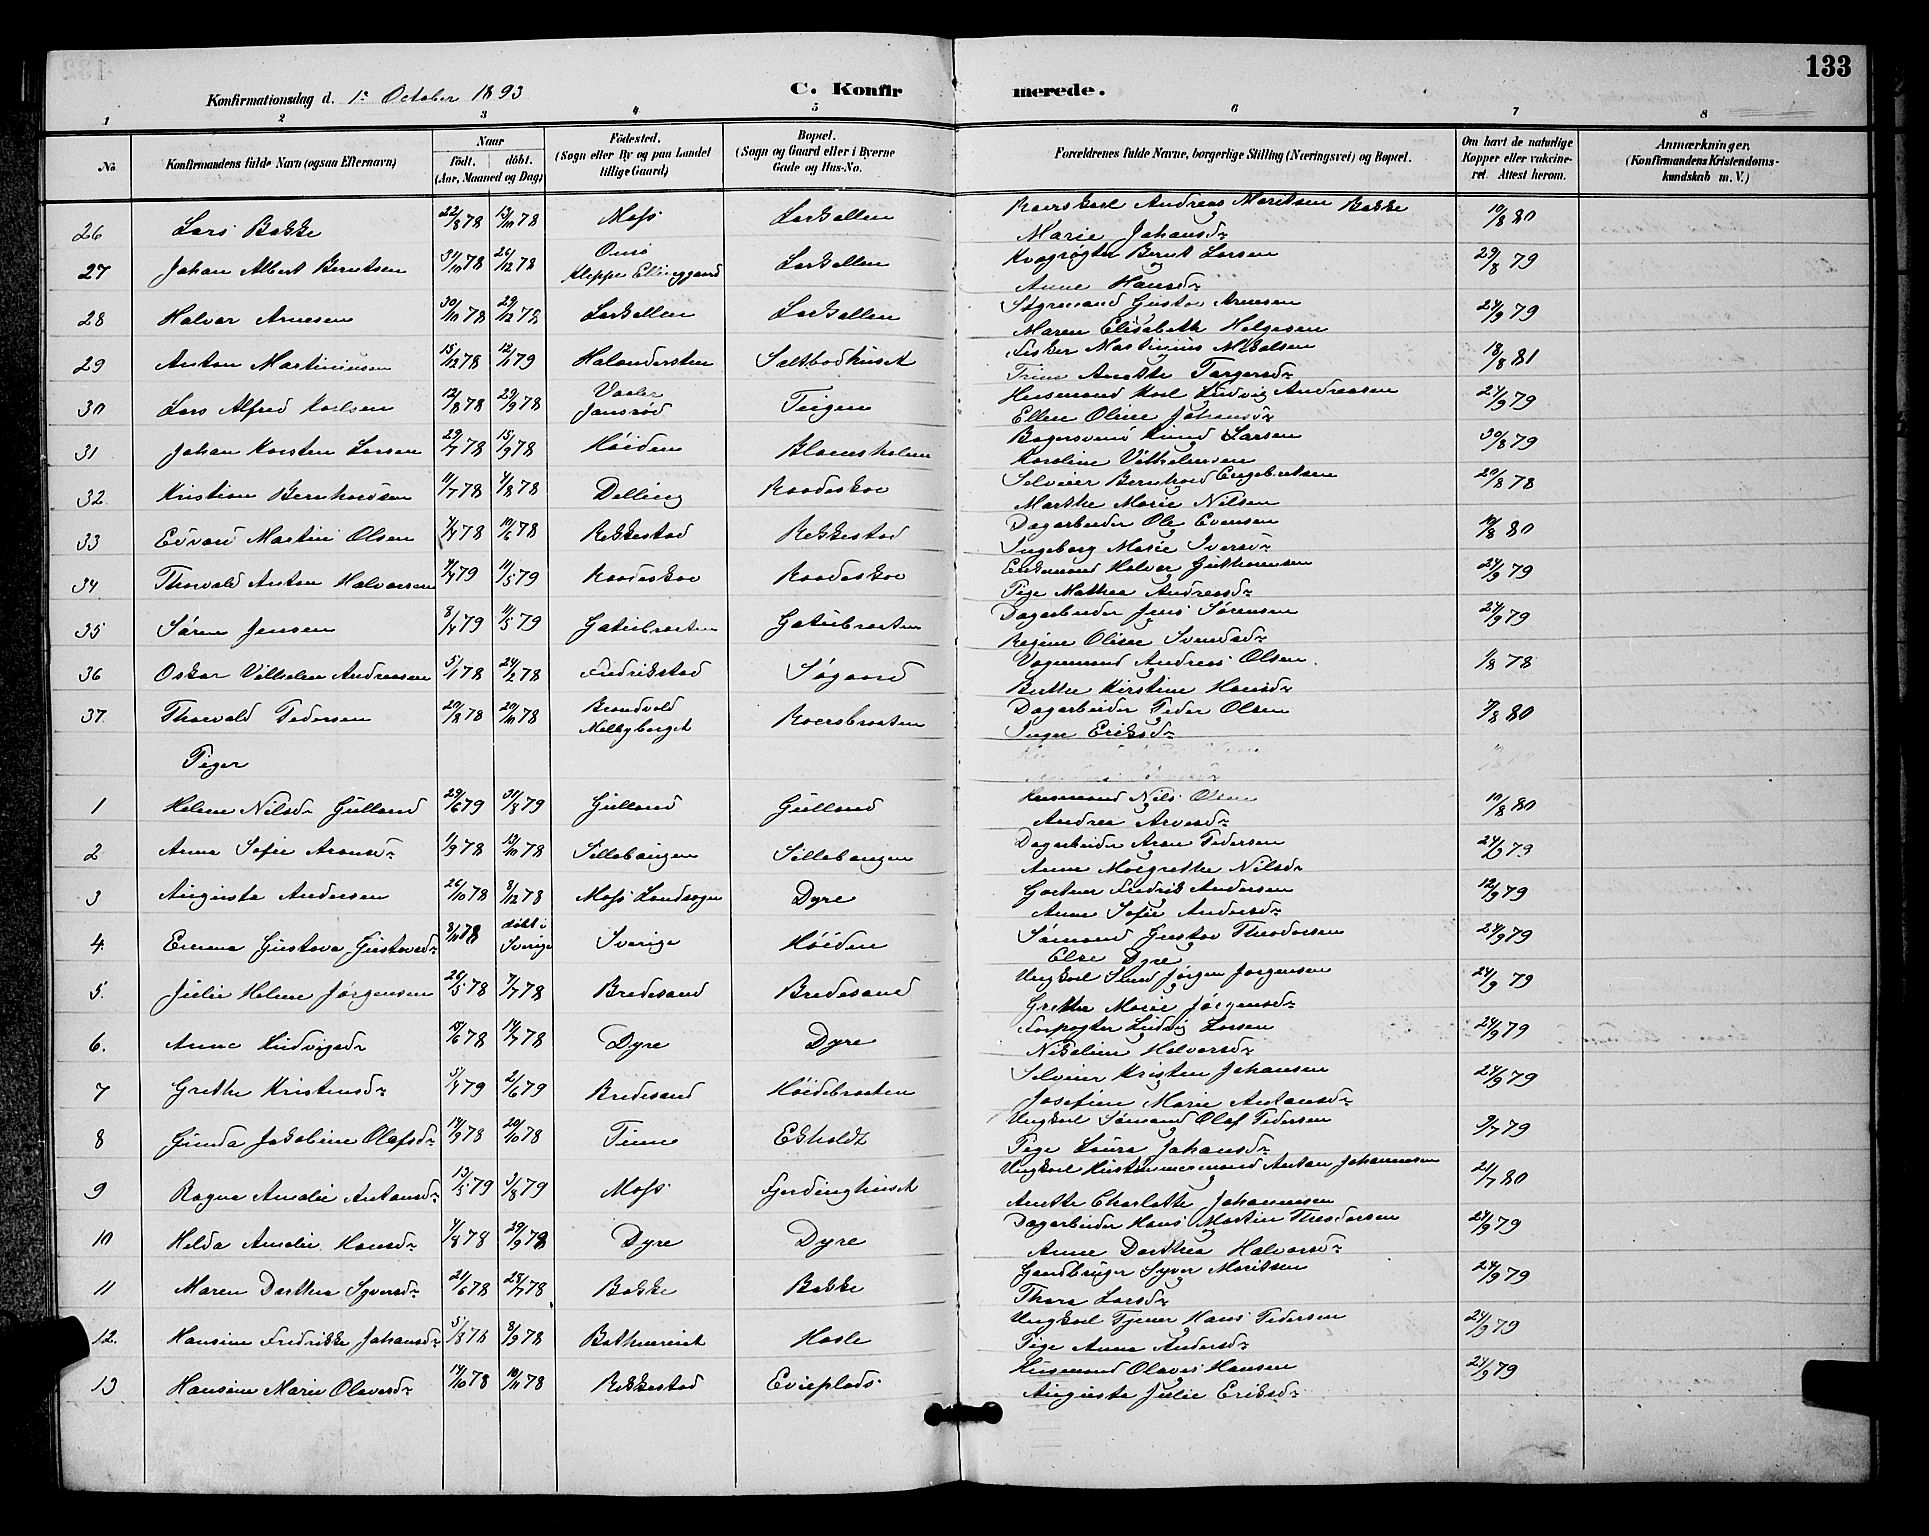 133
Konfirmationsdag d. 1ste October 1893
C. Konfirmerede.
1 2 3 4 5 6 7 8
No Konfirmandens fulde Navn (ogsaa Efternavn) Naar født. døbt. (Aar, Maaned og Dag) Fødested. (Sogn eller By og paa Landet tillige Gaard) Bopæl. (Sogn og Gaard eller i Byerne Gade og Hus-No. Forældrenes fulde Navne, borgerlige Stilling (Næringsvei) og Bopæl. Om havt de naturlige Kopper eller vakcineret. Attest herom. Anmærkninger. (Konfirmandens Kristendomskundskab m. V.)
26 Lars Bakke 22/8 78 13/10 78 Moss Larkollen Andreas Moritsen Bakke 10/8 80
Marie Johansdr
27 Johan Albert Berntsen 31/10 78 26/12 78 Onsø Kleppe Elinggaard Larkollen Kvægrøgter Bernt Larsen 29/8 79
Anne Hansdr
28 Halvor Arnesen 30/10 78 29/12 78 Larkollen Larkollen Styrmand Gustav Arnesen 24/9 79
Maren Elisabeth Helgesen
29 Anton Martiniusen 15/12 78 12/1 79 Halandersten Saltbodhuset Fisker Martinius Mikalsen 18/8 81
Trine Anette Torgersdr
30 Lars Alfred Karlsen 12/8 78 29/9 78 Vaaler Jonsrød Teigen Husmand Karl Ludvig Andreassen 24/9 79
Ellen Oline Johansdr
31 Johan Karsten Larsen 29/7 78 15/9 78 Høiden Blomsholm Bagersvend Knud Larsen 30/8 79
Karoline Vilhelmsen
32. Kristian Bernhardsen 11/7 78 4/8 78 Delling Raadeskov Selveier Bernhard Engebretsen 20/8 78
Marthe Marie Nilsen
33 Edvard Martin Olsen 4/4 78 10/6 78 Rekkestad Rekkestad Dagarbeider Ole Evensen 10/8 80
Ingeborg Marie Iversdr
34. Thorvald Anton Halvorsen 4/4 79 11/5 79 Raadeskov Raadeskov Enkemand Halvor Guthormsen 24/9 79
Pige Mathea Andreasdr
35 Søren Jensen 8/4 79 11/5 79 Gatubraaten Gatubraaten Dagarbeider Jens Sørensen 24/9 79
Regine Oline Svendsdr
36 Oskar Vilhelm Andreasen 5/1 78 24/2 78 Fredrikstad Søgaard Vognmand Andreas Olsen. 1/8 78
Berthe Kirstine Hansdr
37. Thorvald Pedersen 20/8 78 20/10 78 Brandvold Melbyberget Roersbraaten Dagarbeider Peder Olsen 7/8 80
Inger Eriksdr
Piger
1 Helene Nilsdr Gulland 29/6 79 31/8 79 Gulland Gulland Husmand Nils Olsen 10/8 80
Andrea Arvesdr
2 Anna Sofie Aronsdr 1/9 78 13/10 78 Sillebaugen Sillebaugen Dagarbeider Aron Pedersen 24/9 79
Anne Margrethe Nilsdr
3 Augusta Andersen 26/10 78 8/12 78 Moss Landsogn Dyre Gartner Fredrik Andersen 12/9 79
Anne Sofie Andersdr
4. Emma Gustava Gustavsdr 3/11 78 døbt i Sverige Sverige Høiden Sømand Gustav Theodorsen 24/9 79
Else Dyre
5. Julie Helene Jørgensen 26/5 78 7/7 78 Bredesand Bredesand Ungkarl Smed Jørgen Jørgensen 24/9 79
Grethe Marie Jørgensdr
6. Anna Ludvigsdr 10/6 78 14/7 78 Dyre Dyre Forpagter Ludvig Larsen 24/9 79
Nikoline Halvorsdr
7 Grethe Kristensdr 5/4 79 2/6 79 Bredesand Høidebraaten Selveier Kristen Johansen 24/9 79
Josefine Marie Antonsdr
8 Gunda Jakobine Olafsdr 14/9 78 20/10 78 Tinne Ekholdt Ungkarl Sømand Olaf Pedersen 9/7 79
Pige Laura Johansdr
9 Ragna Amalie Antonsdr 13/5 79 3/8 79 Moss Fjordinghuset Ungkarl Anton Johannesen 21/7 80
Anette Charlotte Johannesen
10 Helda Amalie Hansdr 4/8 78 29/9 78 Dyre Dyre Dagarbeider Hans Martin Theodorsen 24/9 79
Anne Dorthea Halvorsdr
11 Maren Dorthea Syversdr 21/6 78 28/7 78 Bakke Bakke Gaardbruger Syver Moritsen 24/9 79
Thora Larsdr
12. Hansine Fredrikke Johansdr 5/8 78 8/9 78 Hasle Ungkarl Tjener Hans Pedersen 24/9 79
Pige Anna Andersdr
13 Hansine Marie Olavesdr 14/10 78 10/11 78 Rekkestad Evjeplads Husmand Olaves Hansen 24/9 79
Auguste Julie Eriksdr